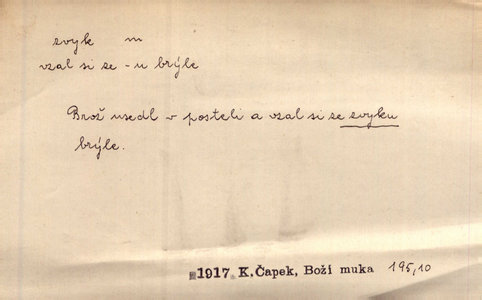 zvyk m
vzal si ze -u brýle
Brož usedl v posteli a vzal si ze zvyku
brýle.
1917 K.Čapek, Boží muka 195,10